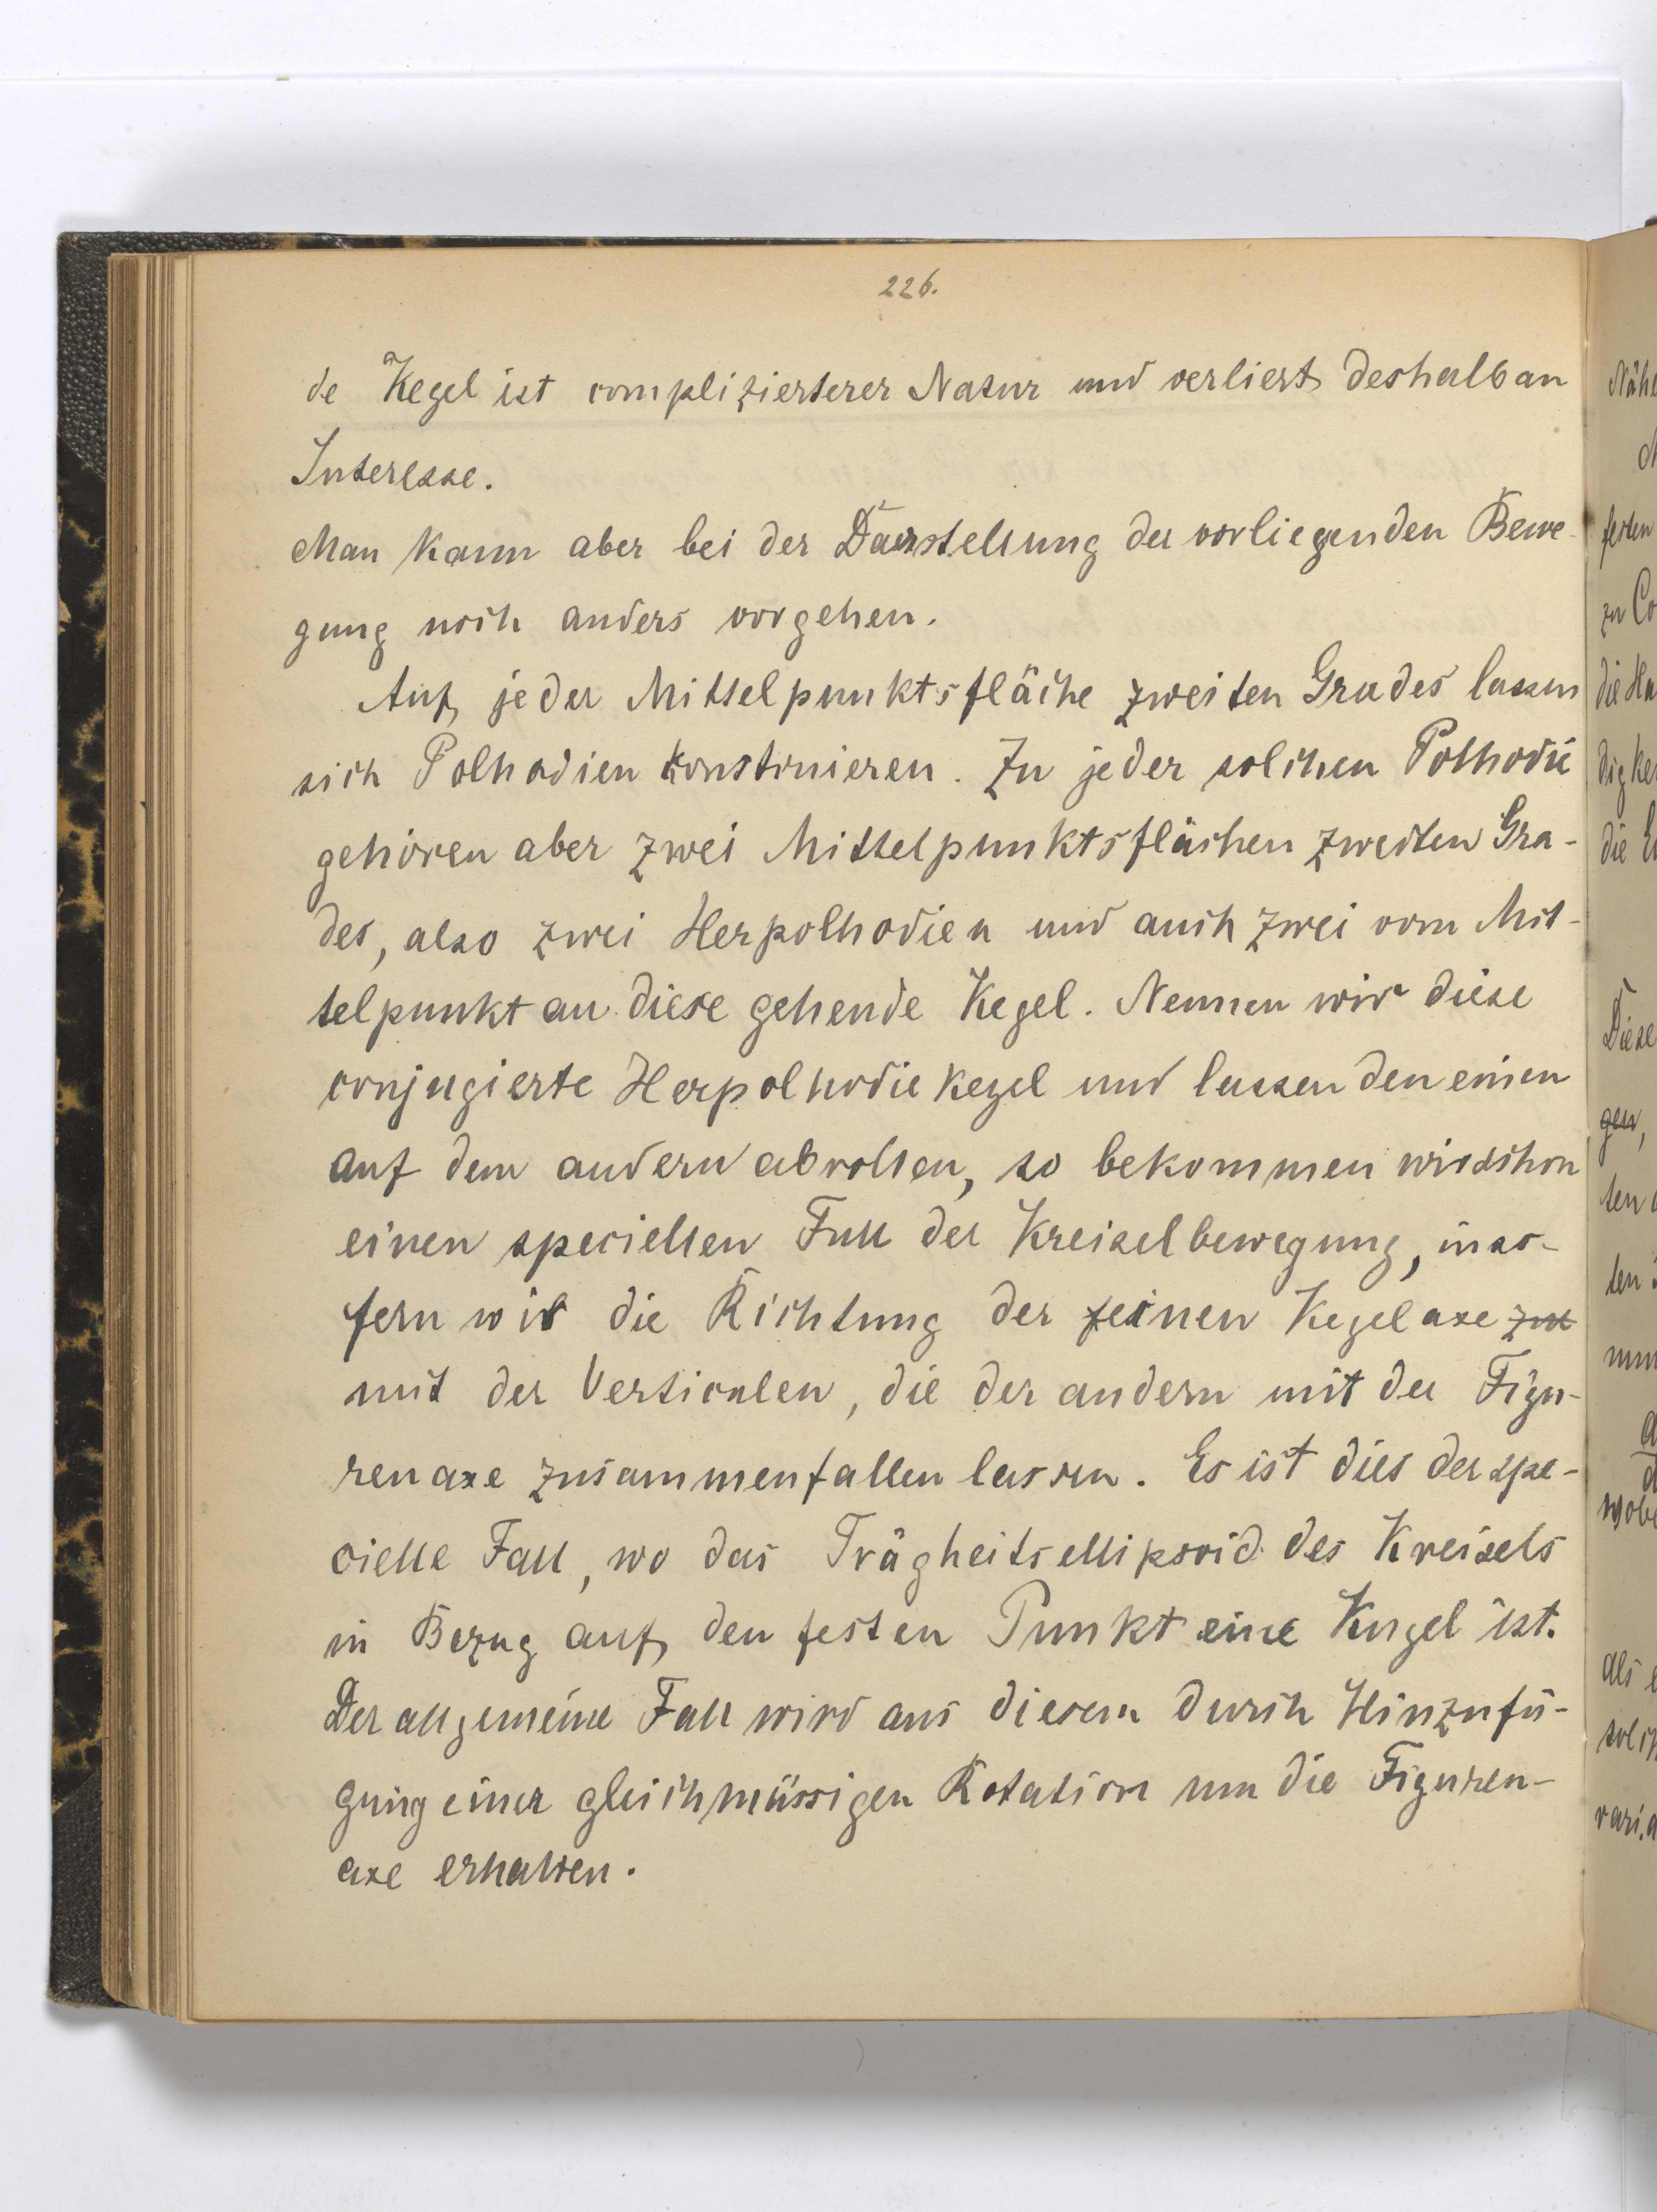 226.
de Kegel ist complizierterer Natur und verliert deshalb an
Interesse.
Man kann aber bei der Darstellung der vorliegenden Bewe-
gung noch anders vorgehen.
Auf jeder Mittelpunktsfläche zweiten Grades lassen
sich Polhodien konstruieren. Zu jeder solchen Polhodie
gehören aber zwei Mittelpunktsflächen zweiten Gra-
des, also zwei Herpolhodien und auch zwei vom Mit-
telpunkt an diese gehende Kegel. Nennen wir diese
conjugierte Herpolhodiekegel und lassen den einen
auf dem andern abrollen, so bekommen wir schon
einen speciellen Fall der Kreiselbewegung, inso-
fern wir die Richtung der einen Kegelaxe zur
mit der Verticalen, die der andern mit der Figu-
renaxe zusammenfallen lassen. Es ist dies der spe-
cielle Fall, wo das Trägheitsellipsoid des Kreisels
in Bezug auf den festen Punkt eine Kugel ist.
Der allgemeine Fall wird aus diesem durch Hinzufü-
gung einer gleichmässigen Rotation um die Figuren-
axe erhalten.